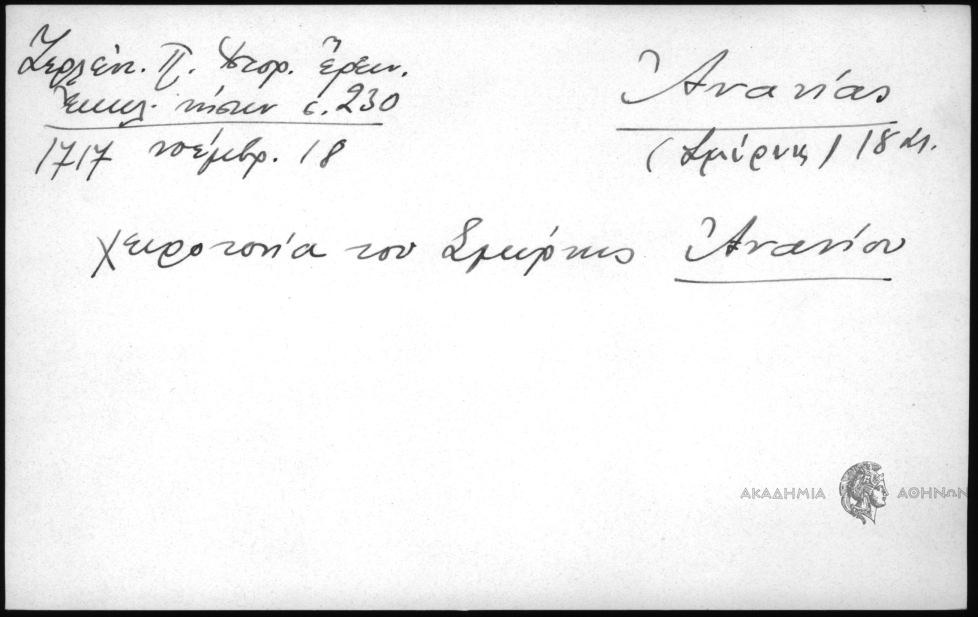 Ζερλέντ. Π. Ἱστορ. ἔρευν.
Ἐκκλ. νήσων σ. 230
1717 νοέμβρ. 18
Ἀνανίας
(Σμύρνης) 18 αἰ.
χειροτονία του Σμύρνης Ἀνανίου
ΑΚΑΔΗΜΙΑ ΑΘΗΝΩΝ